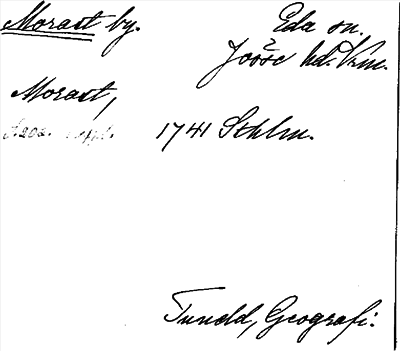 Morast by. Eda sn.
Jösse hd. Vrm.
Morast,
1741 Sthlm.
Tuneld, Geografi.